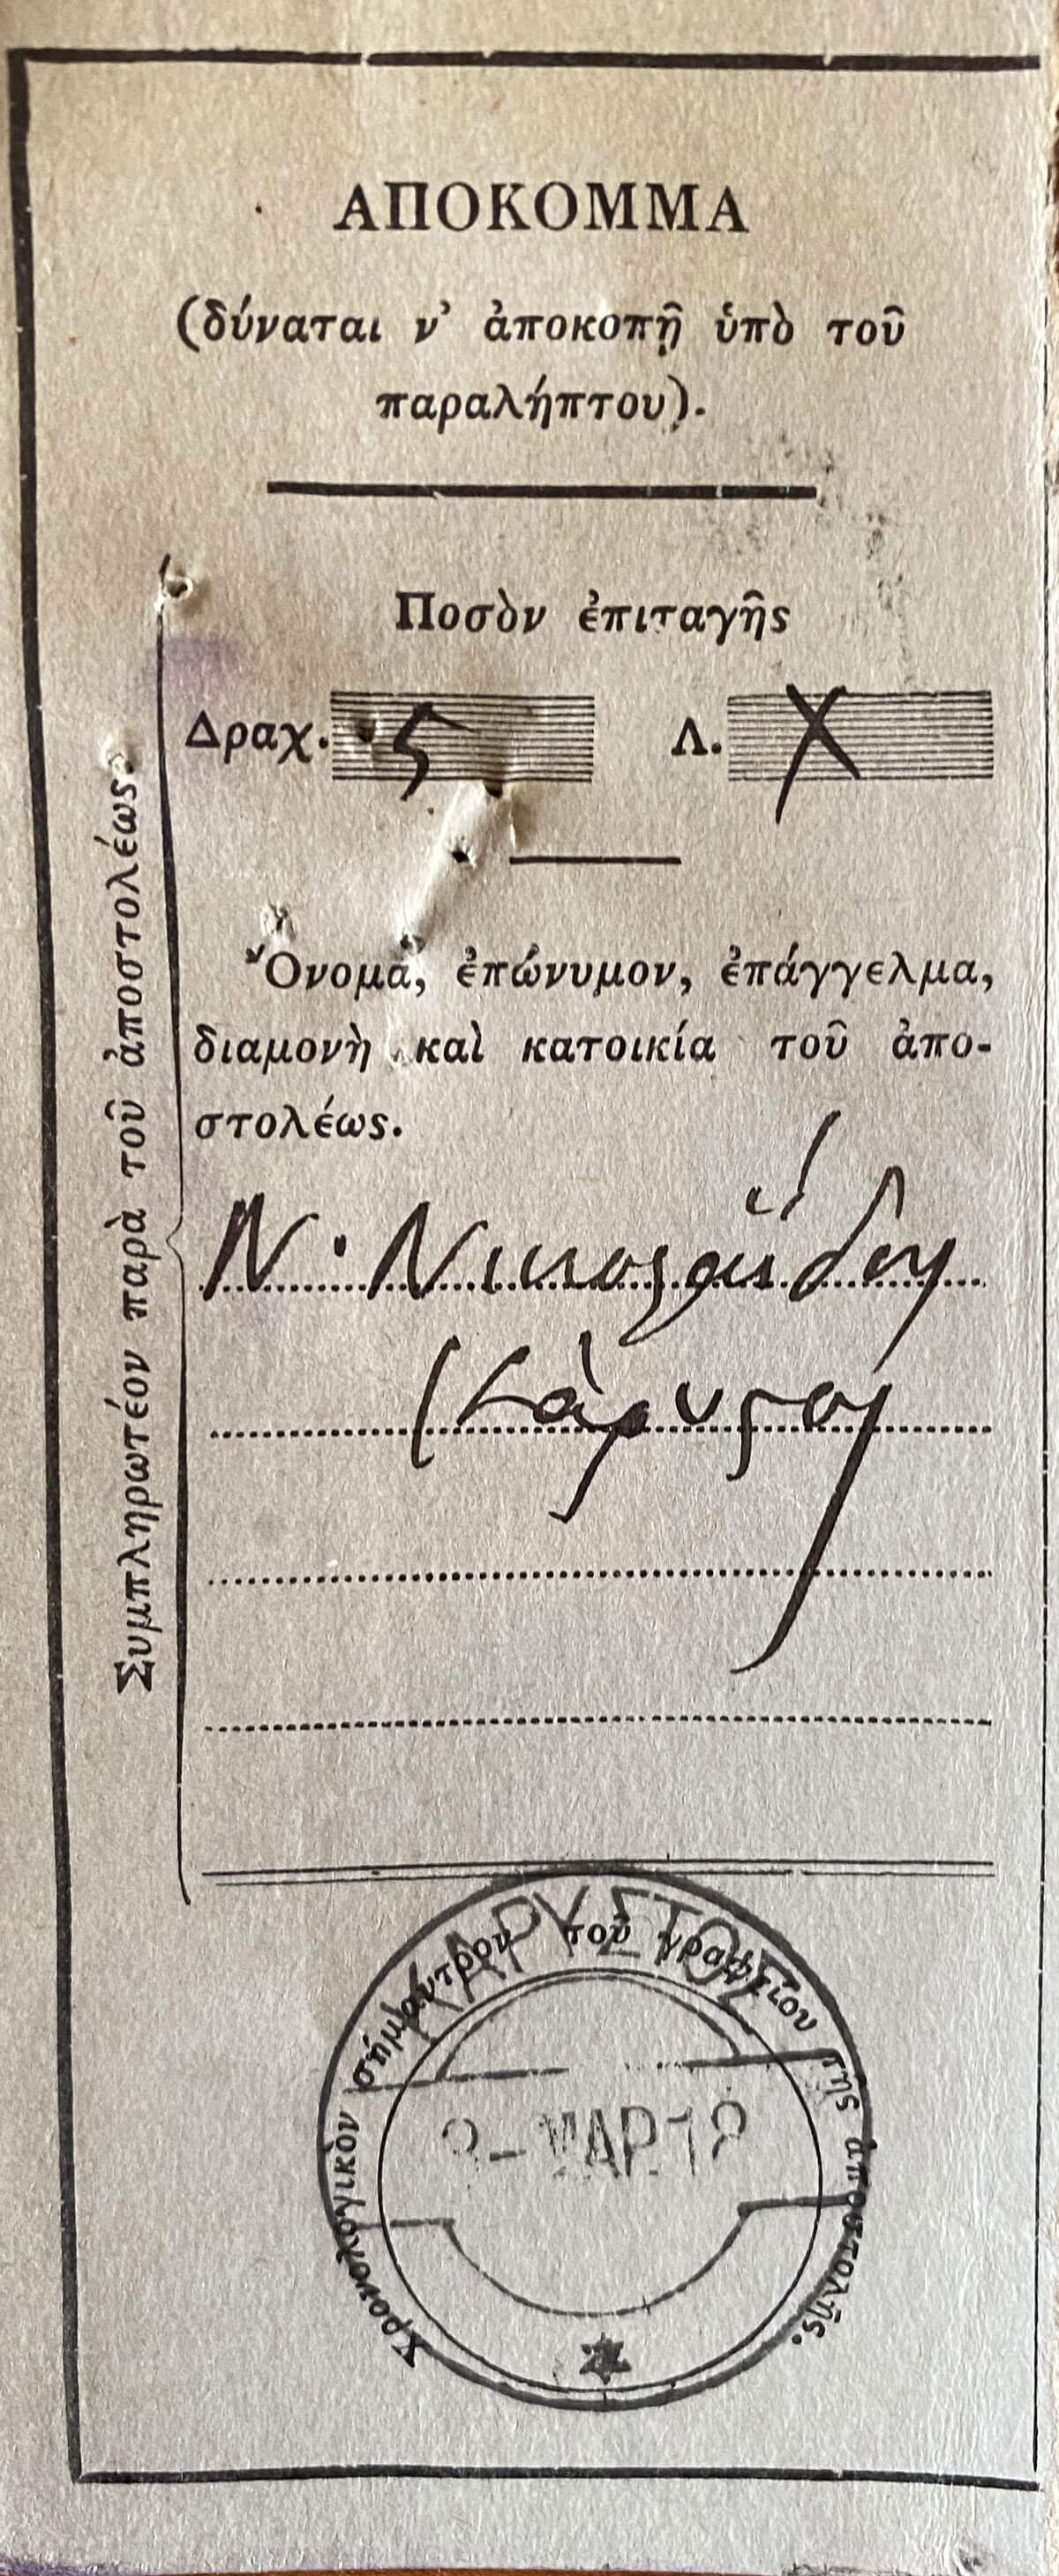 ΑΠΟΚΟΜΜΑ
(δύναται ν' ἀποκοπῇ ὑπὸ τοῦ
παραλήπτου).
Ποσὸν ἐπιταγῆς
Δραχ. 5 Λ. X
Ὄνομα, ἐπώνυμον, ἐπάγγελμα,
διαμονὴ καὶ κατοικία τοῦ ἀπο-
στολέως.
Ν. Νικολαΐδης
Κάρυστος
Συμπληρωτέον παρὰ τοῦ ἀποστολέως.
Χρονολογικὸν σήμαντρον τοῦ γραφείου τῆς ἀποστολῆς.
ΚΑΡΥΣΤΟΣ
ΜΑΡ.18